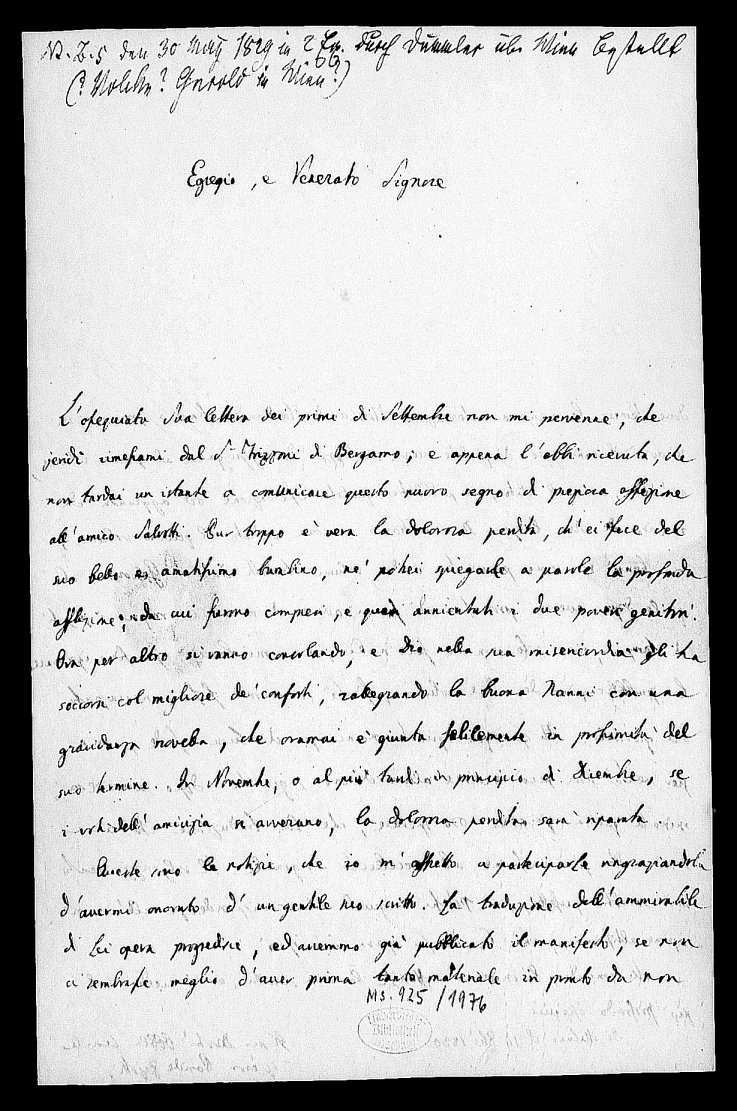 den 30 May 1829 in 2 Ex. durch Dümmler über Wien bestellt
(? Volke? Gerold in Wien?)
Egregio, e Venerato Signore
L'ossequiata Sua lettera dei primi di Settembre non mi pervenne, che
jeridì rimessami dal S. Frizzoni di Bergamo; e appena l'ebbi ricevuta, che
non tardai un istante a comunicare questo nuovo segno di preziosa affezione
all'amico Salvotti. Pur troppo è vera la dolorosa perdita, ch'ei fece del
suo bello ed amatissimo bambino, nè potrei spiegarle a parole la profonda
afflizione, da cui furono compresi, e quasi annientati i due poveri genitori.
Ora per altro si vanno consolando, e Dio nella sua misericordia gli ha
soccorsi col migliore de' conforti, rallegrando la buona Nanni con una
gravidanza novella, che oramai è giunta felicemente in prossimità del
suo termine. In Novembre, o al più tardi in principio di Xiembre, se
i voti dell'amicizia si avverano, la dolorosa perdita sarà riparata.
Queste sono le notizie, che io m'affretto a parteciparle ringraziandola
d'avermi onorato d'un gentile suo scritto. La traduzione dell'ammirabile
di Lei opera progredisce, ed avremmo già pubblicato il manifesto, se non
ci sembrasse meglio d'aver prima tanto materiale in pronto da non
Ms. 925/1976
Bibliothek